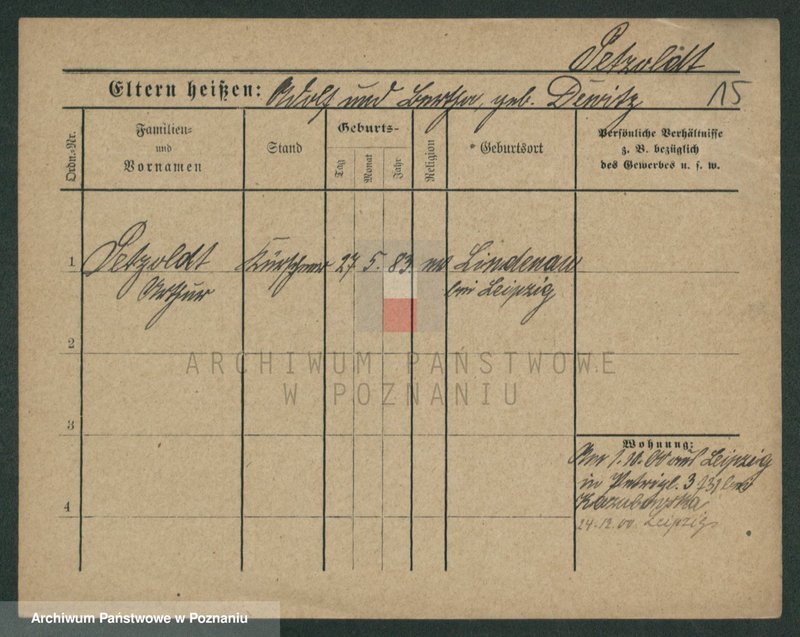 Petzoldt
Eltern heißen: Adolf und Bertha, geb. Dewitz
15
Ordn.-Nr.
Familien-
und
Vornamen
Stand
Geburts-
Tag
Monat
Jahr
Religion
Geburtsort
Persönliche Verhältnisse
z. B. bezüglich
des Gewerbes u. s. w.
1 Petzoldt Kürschner 27 5. 83 ev Lindenau
Arthur bei Leipzig
2
ARCHIWUM PAŃSTWOWE
W POZNANIU
3
Wohnung:
1.10.00 aus Leipzig
in Petripl. 3 bei
4
24.12.00 Leipzig
Archiwum Państwowe w Poznaniu